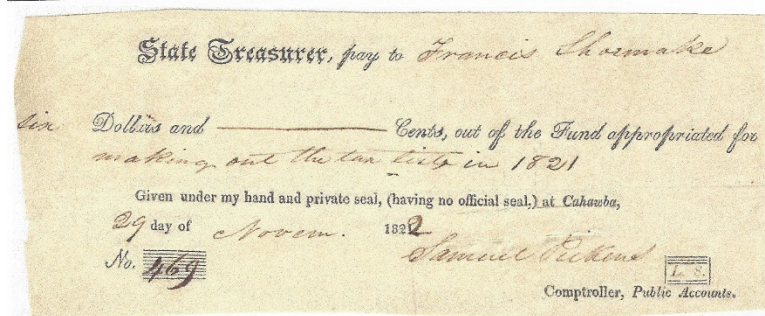 State Treasurer, pay to Francis Shoemake
six Dollars and ——— Cents, out of the Fund appropriated for
making out the tax lists in 1821
Given under my hand and private seal, (having no official seal,) at Cahawba,
29 day of Novem. 1822
Samuel Pickens
No. 469
L. S.
Comptroller, Public Accounts.